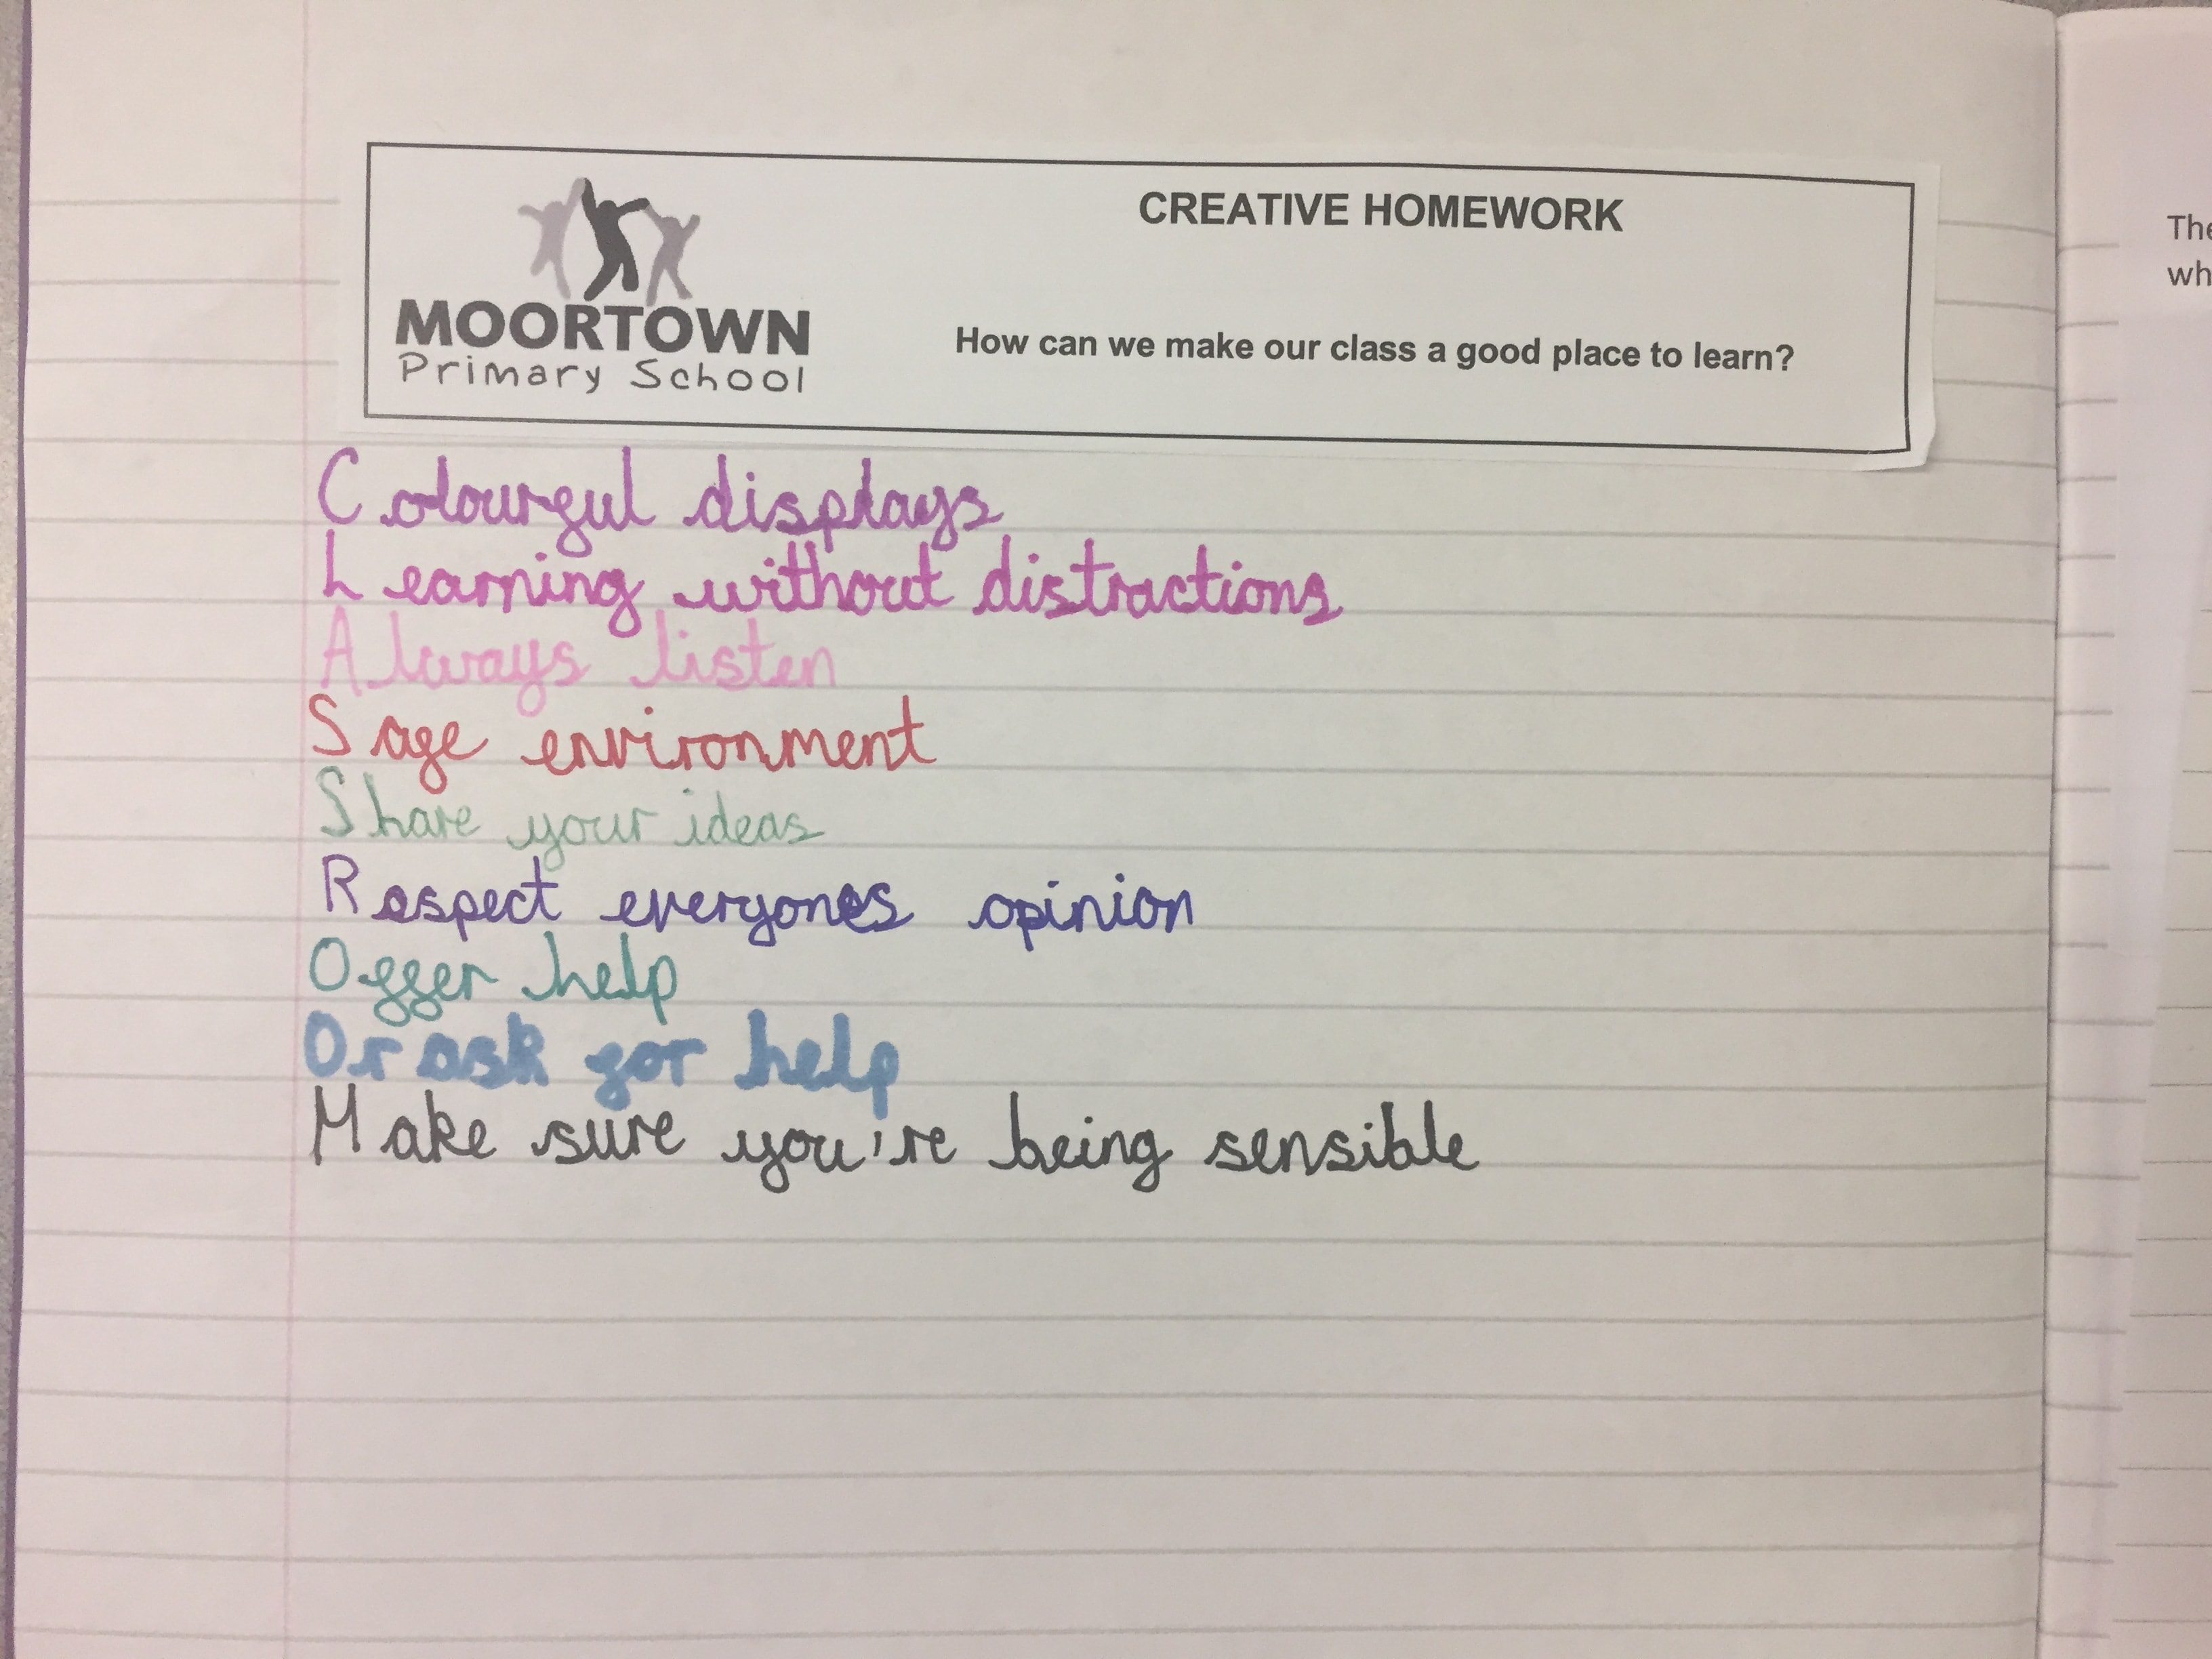 CREATIVE HOMEWORK
MOORTOWN
Primary School
How can we make our class a good place to learn?
Colourful displays
Learning without distractions
Always listen
Safe environment
Share your ideas
Respect everyones opinion
Offer help
Or ask for help
Make sure you're being sensible
The
wh